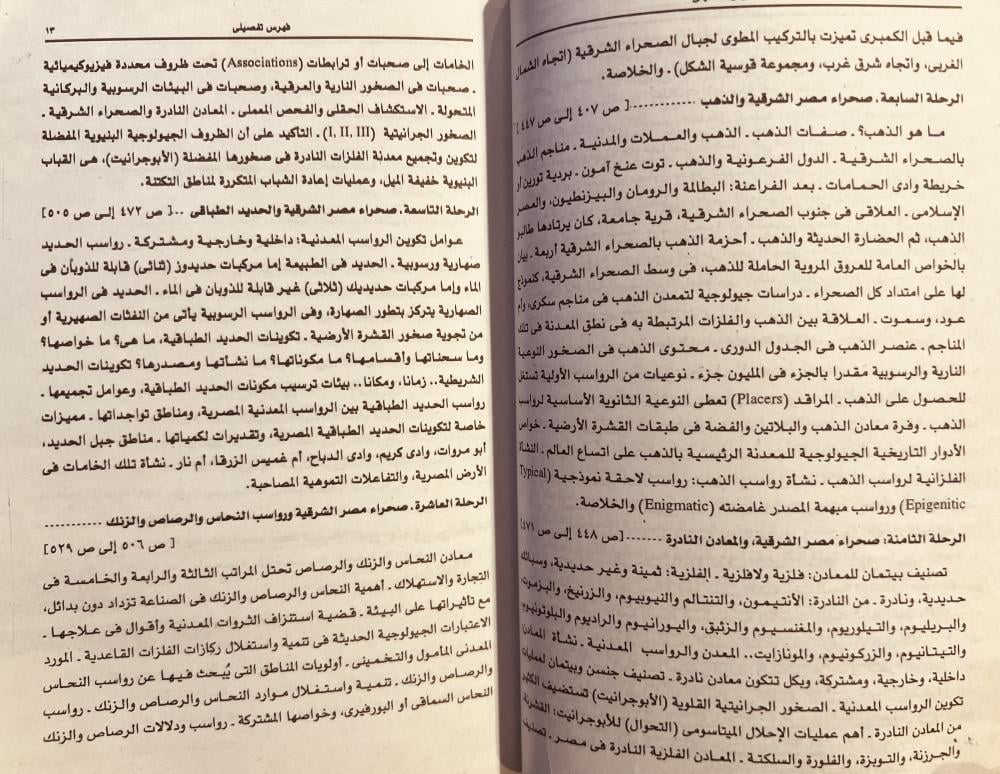 فيما قبل الكمبرى تميزت بالتركيب المطوى لجبال الصحراء الشرقية (اتجاه الشمال
الغربى، واتجاه شرق غرب، ومجموعة قوسية الشكل) . والخلاصة.
الرحلة السابعة. صحراء مصر الشرقية والذهب ------------[ ص ٤٠٧ إلى ص ٤٤٧]
ما هو الذهب؟. صفات الذهب . الذهب والعملات والمدنية . مناجم الذهب
بالصحراء الشرقية . الدول الفرعونية والذهب . توت عنخ آمون . بردية تورين أو
خريطة وادى الحمامات . بعد الفراعنة: البطالمة والرومان والبيزنطيون، والعصر
الإسلامى . العلاقى فى جنوب الصحراء الشرقية، قرية جامعة، كان يرتادها طالبو
الذهب، ثم الحضارة الحديثة والذهب . أحزمة الذهب بالصحراء الشرقية أربعة . بيان
بالخواص العامة للعروق المروية الحاملة للذهب، فى وسط الصحراء الشرقية، كنموذج
لها على امتداد كل الصحراء . دراسات جيولوجية لتمعدن الذهب فى مناجم سكرى، وأم
عود، وسموت . العلاقة بين الذهب والفلزات المرتبطة به فى نطق المعدنة فى تلك
المناجم . عنصر الذهب فى الجدول الدورى . محتوى الذهب فى الصخور النوعية
النارية والرسوبية مقدرا بالجزء فى المليون جزء . نوعيات من الرواسب الأولية تستغل
للحصول على الذهب . المراقد (Placers) تعطى النوعية الثانوية الأساسية لرواسب
الذهب . وفرة معادن الذهب والبلاتين والفضة فى طبقات القشرة الأرضية . خواص
الأدوار التاريخية الجيولوجية للمعدنة الرئيسية بالذهب على اتساع العالم . النشأة
الفلزانية لرواسب الذهب . نشأة رواسب الذهب: رواسب لاحقة نموذجية (Typical
Epigenitic) ورواسب مبهمة المصدر غامضته (Enigmatic) والخلاصة.
الرحلة الثامنة: صحراء مصر الشرقية، والمعادن النادرة -------[ص ٤٤٨ إلى ص ٤٧١]
تصنيف بيتمان للمعادن: فلزية ولافلزية . الفلزية: ثمينة وغير حديدية، وسبائك
حديدية، ونادرة . من النادرة: الأنتيمون، والتنتالم والنيوبيوم، والزرنيخ، والبزموت،
والبريليوم، والتيلوريوم، والمغنسيوم والزئبق، واليورانيوم والراديوم والبلوتونيوم
والتيتانيوم، والزركونيوم، والمونازايت.. المعدن والرواسب المعدنية . نشأة المعادن
داخلية، وخارجية، ومشتركة، وبكل تتكون معادن نادرة . تصنيف جنسن وبيتمان لعمليات
تكوين الرواسب المعدنية . الصخور الجرانيتية القلوية (الأبوجرانيت) تستضيف الكثير
من المعادن النادرة . أهم عمليات الإحلال الميتاسومى (التحوال) للأبوجرانيت: القشرية،
والجرزنة، والتوبزة، والفلورة والسلكتة . المعادن الفلزية النادرة فى مصر . تصنيف
فهرس تفصيلى
١٣
الخامات إلى صحبات أو ترابطات (Associations) تحت ظروف محددة فيزيوكيميائية
. صحبات فى الصخور النارية والعرقية، وصحبات فى البيئات الرسوبية والبركانية
المتحولة . الاستكشاف الحقلى والفحص المعملى . المعادن النادرة والصحراء الشرقية .
الصخور الجرانيتية (I, II, III) . التأكيد على أن الظروف الجيولوجية البنيوية المفضلة
لتكوين وتجميع معدنة الفلزات النادرة فى صخورها المفضلة (الأبوجرانيت)، هى القباب
البنيوية خفيفة الميل، وعمليات إعادة الشباب المتكررة لمناطق التكتنة.
الرحلة التاسعة. صحراء مصر الشرقية والحديد الطباقى ...[ ص ٤٧٢ إلى ص ٥٠٥]
عوامل تكوين الرواسب المعدنية: داخلية وخارجية ومشتركة . رواسب الحديد
صهارية ورسوبية . الحديد فى الطبيعة إما مركبات حديدوز (ثنائى) قابلة للذوبان فى
الماء وإما مركبات حديديك (ثلاثى) غير قابلة للذوبان فى الماء . الحديد فى الرواسب
الصهارية يتركز بتطور الصهارة، وفى الرواسب الرسوبية يأتى من النفثات الصهيرية أو
من تجوية صخور القشرة الأرضية . تكوينات الحديد الطباقية، ما هى؟ ما خواصها؟
وما سحناتها وأقسامها؟ ما مكوناتها؟ ما نشأتها ومصدرها؟ تكوينات الحديد
الشريطية.. زمانا، ومكانا.. بيئات ترسيب مكونات الحديد الطباقية، وعوامل تجميعها .
رواسب الحديد الطباقية بين الرواسب المعدنية المصرية، ومناطق تواجداتها . مميزات
خاصة لتكوينات الحديد الطباقية المصرية، وتقديرات لكمياتها . مناطق جبل الحديد،
أبو مروات، وادى كريم، وادى الدباح، أم غميس الزرقا، أم نار . نشأة تلك الخامات فى
الأرض المصرية، والتفاعلات التموهية المصاحبة.
الرحلة العاشرة. صحراء مصر الشرقية ورواسب النحاس والرصاص والزنك -----------
[ ص ٥٠٦ إلى ص ٥٢٩]
معادن النحاس والزنك والرصاص تحتل المراتب الثالثة والرابعة والخامسة فى
التجارة والاستهلاك . أهمية النحاس والرصاص والزنك فى الصناعة تزداد دون بدائل،
مع تأثيراتها على البيئة . قضية استنزاف الثروات المعدنية وأقوال فى علاجها .
الاعتبارات الجيولوجية الحديثة فى تنمية واستغلال ركازات الفلزات القاعدية . المورد
المعدنى المأمول والتخمينى . أولويات المناطق التى يُبحث فيها عن رواسب النحاس
والرصاص والزنك . تنمية واستغلال موارد النحاس والرصاص والزنك . رواسب
النحاس السماقى أو البورفيرى، وخواصها المشتركة . رواسب ودلالات الرصاص والزنك